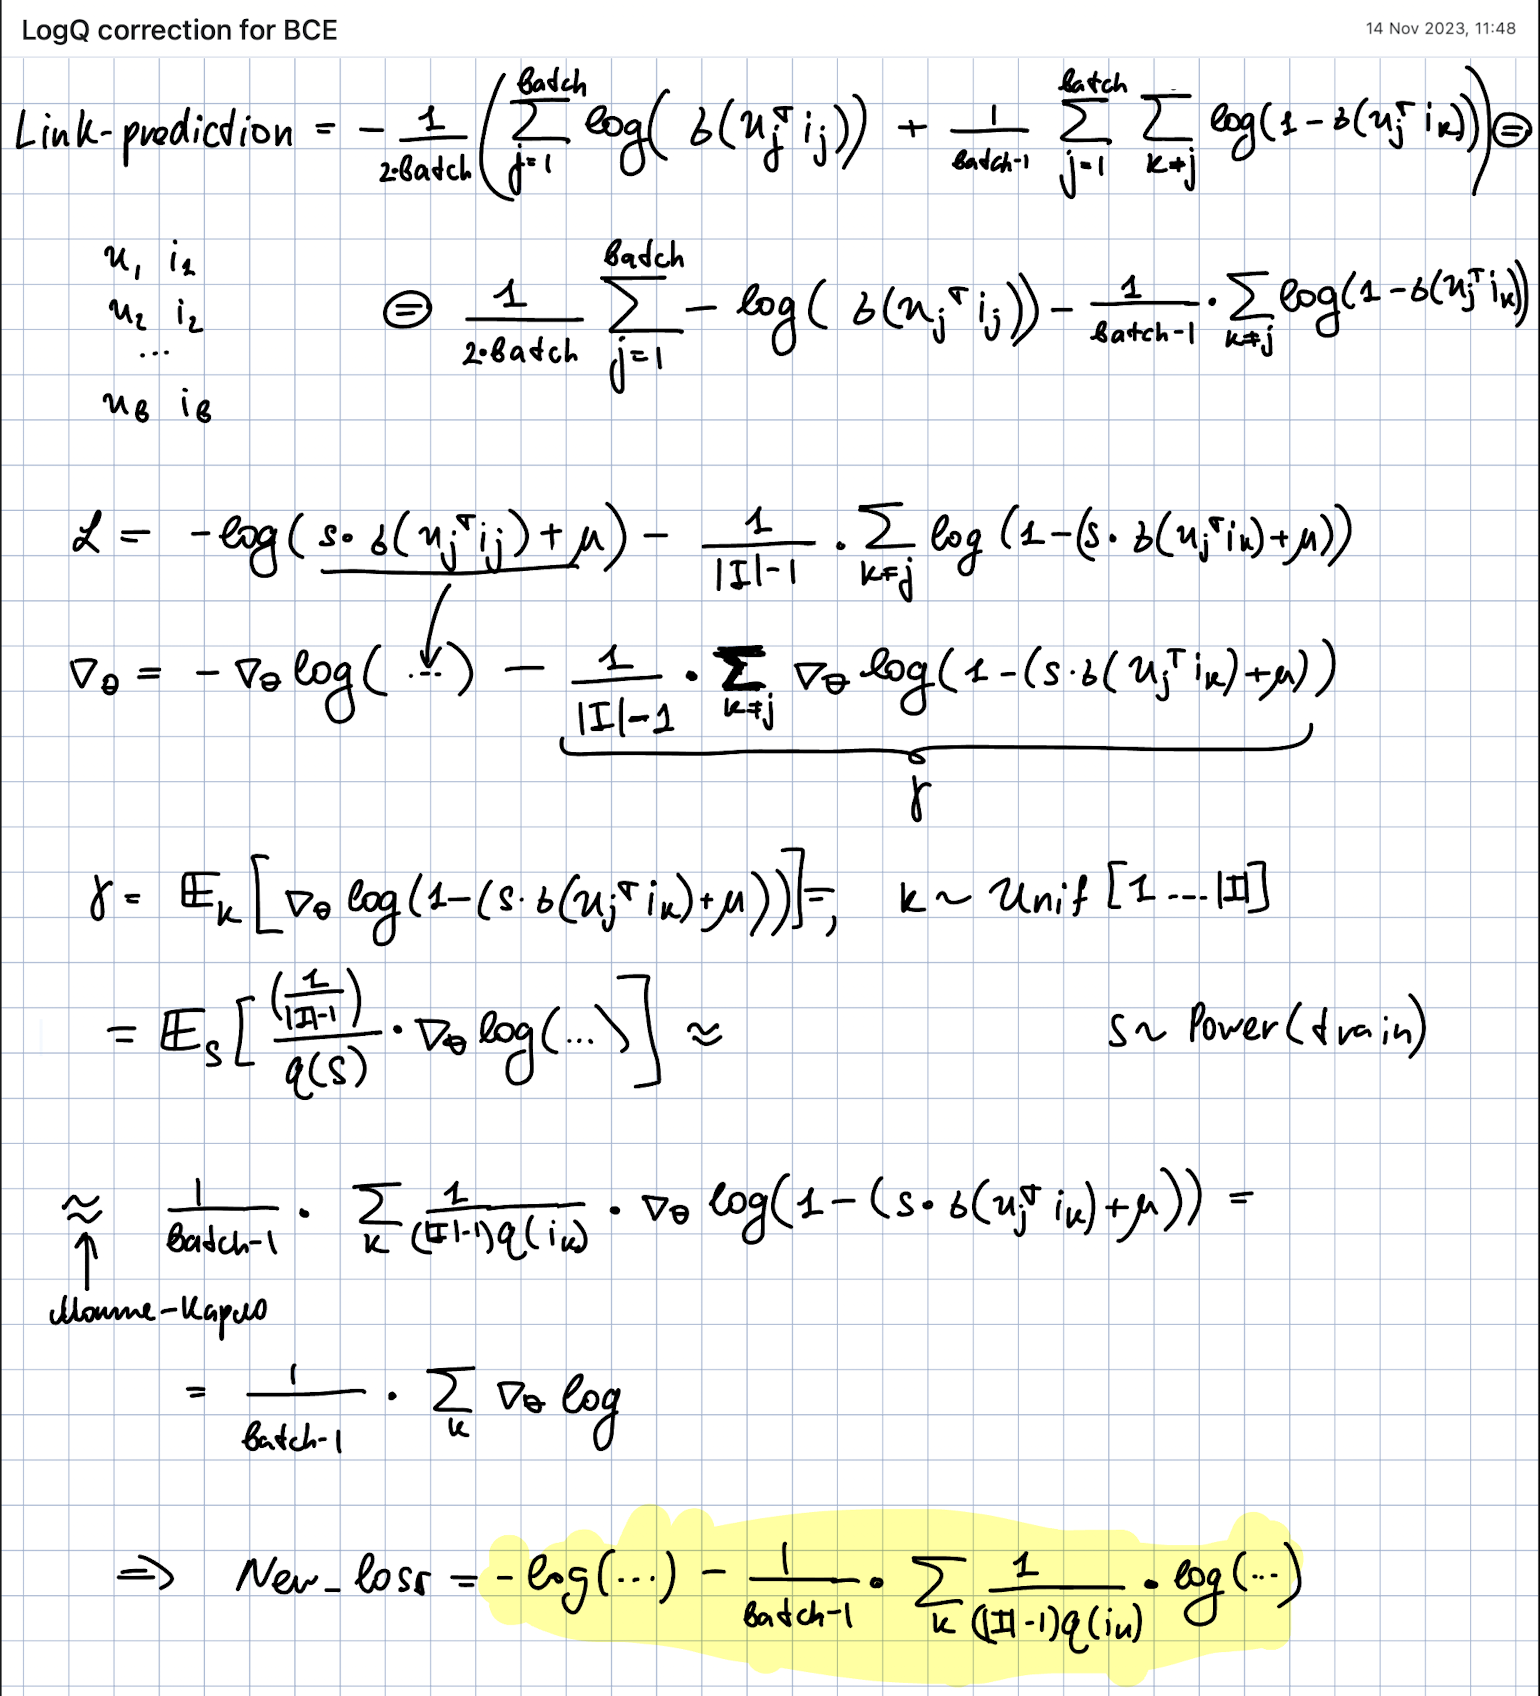 LogQ correction for BCE
14 Nov 2023, 11:48
Link-prediction = - 1/(2·Batch) ( Σ_{j=1}^{Batch} log( σ(u_j^T i_j)) + 1/(Batch-1) Σ_{j=1}^{Batch} Σ_{k≠j} log(1 - σ(u_j^T i_k)) ) ⊜
u_1 i_1
u_2 i_2
...
u_B i_B
⊜ 1/(2·Batch) Σ_{j=1}^{Batch} - log( σ(u_j^T i_j)) - 1/(Batch-1) · Σ_{k≠j} log(1 - σ(u_j^T i_k))
ℒ = -log( s·σ(u_j^T i_j) + μ) - 1/(|I|-1) · Σ_{k≠j} log (1-(s·σ(u_j^T i_k)+μ))
∇_θ = - ∇_θ log( ... ) - 1/(|I|-1) · Σ_{k≠j} ∇_θ log(1-(s·σ(u_j^T i_k)+μ))
γ
γ = 𝔼_k [ ∇_θ log(1-(s·σ(u_j^T i_k)+μ)) ] =, k ~ Unif [1 ... |I|]
= 𝔼_s [ (1/(|I|-1))/q(s) · ∇_θ log(...) ] ≈ s ~ Power(train)
≈ 1/(Batch-1) · Σ_k 1/((|I|-1)q(i_k)) · ∇_θ log(1-(s·σ(u_j^T i_k)+μ)) =
↑
Монте-Карло
= 1/(Batch-1) · Σ_k ∇_θ log
⇒ New_loss = -log(...) - 1/(Batch-1) · Σ_k 1/((|I|-1)q(i_k)) · log(...)